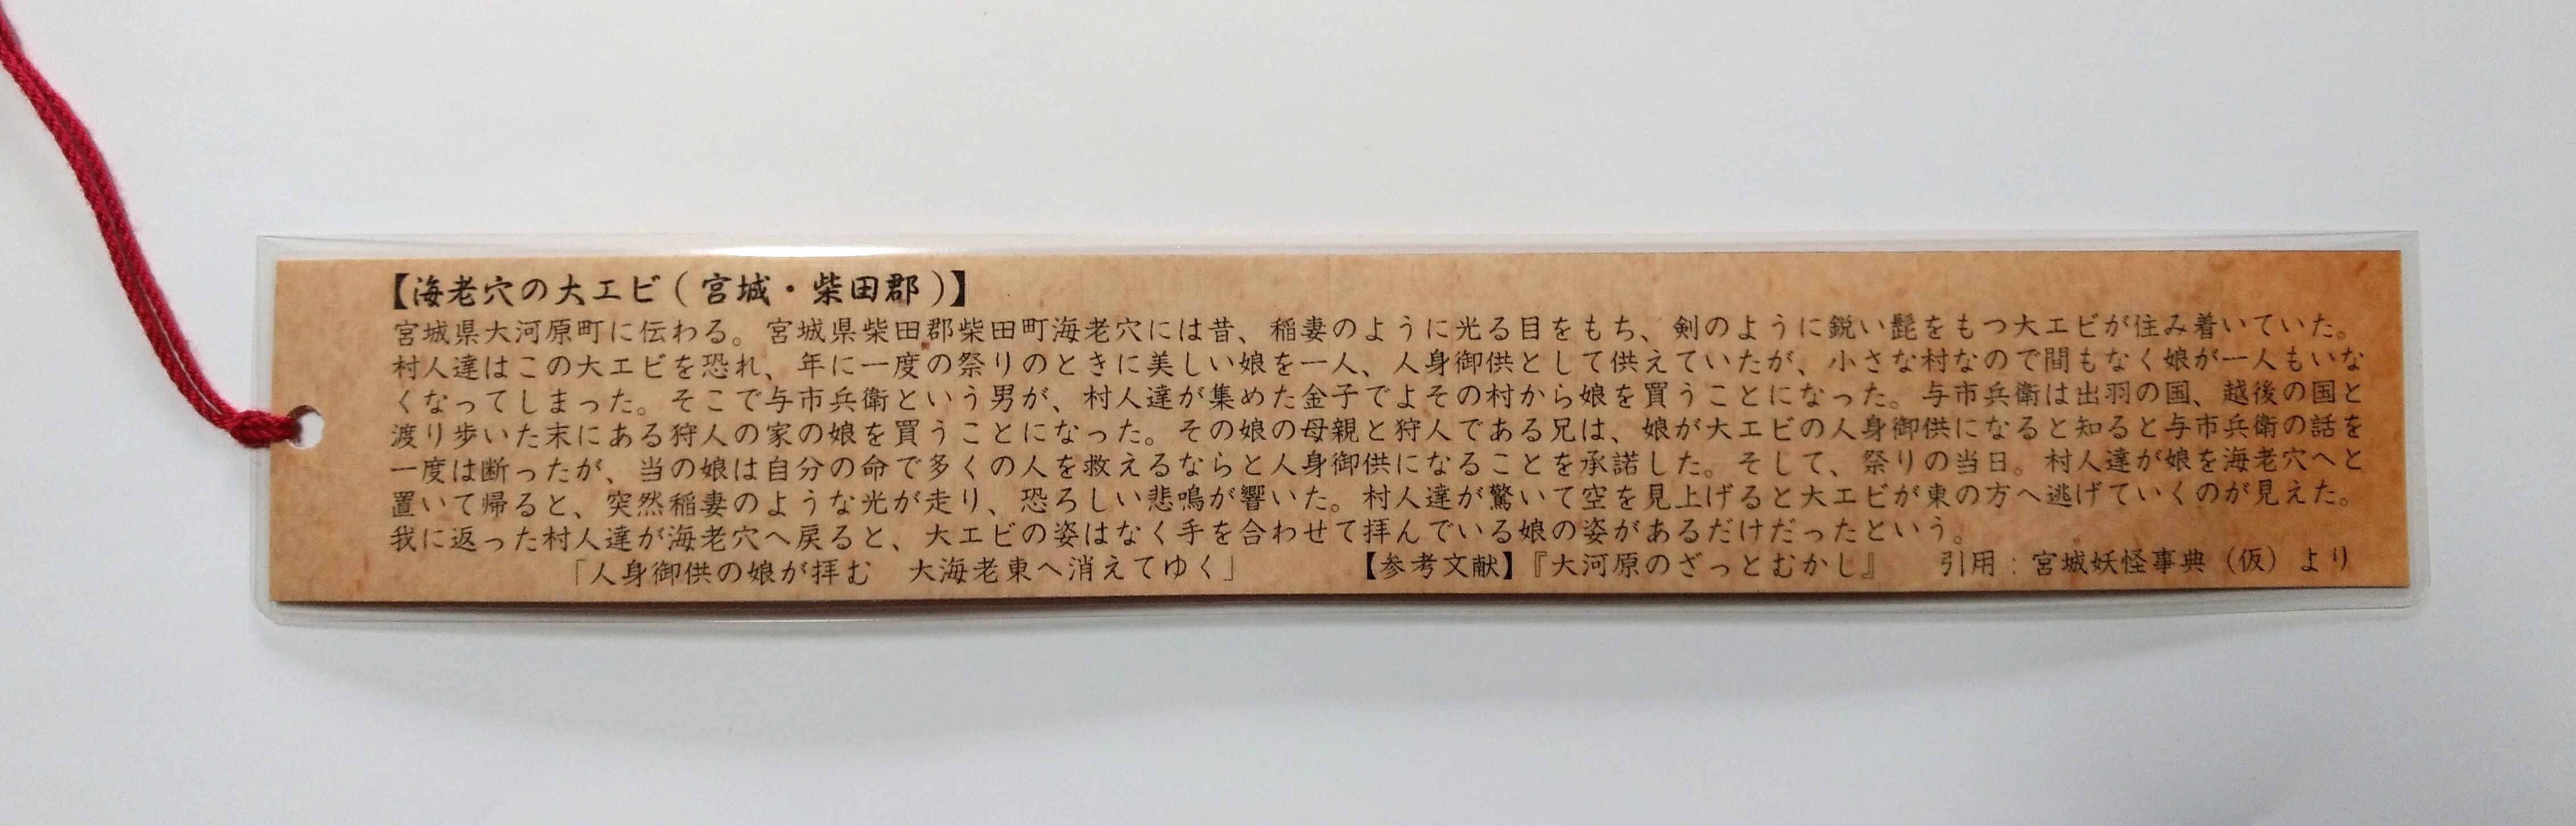 【海老穴の大エビ(宮城・柴田郡)】
宮城県大河原町に伝わる。宮城県柴田郡柴田町海老穴には昔、稲妻のように光る目をもち、剣のように鋭い髭をもつ大エビが住み着いていた。
村人達はこの大エビを恐れ、年に一度の祭りのときに美しい娘を一人、人身御供として供えていたが、小さな村なので間もなく娘が一人もいな
くなってしまった。そこで与市兵衛という男が、村人達が集めた金子でよその村から娘を買うことになった。与市兵衛は出羽の国、越後の国と
渡り歩いた末にある狩人の家の娘を買うことになった。その娘の母親と狩人である兄は、娘が大エビの人身御供になると知ると与市兵衛の話を
一度は断ったが、当の娘は自分の命で多くの人を救えるならと人身御供になることを承諾した。そして、祭りの当日。村人達が娘を海老穴へと
置いて帰ると、突然稲妻のような光が走り、恐ろしい悲鳴が響いた。村人達が驚いて空を見上げると大エビが東の方へ逃げていくのが見えた。
我に返った村人達が海老穴へ戻ると、大エビの姿はなく手を合わせて拝んでいる娘の姿があるだけだったという。
「人身御供の娘が拝む　大海老東へ消えてゆく」　【参考文献】『大河原のざっとむかし』　引用：宮城妖怪事典（仮）より